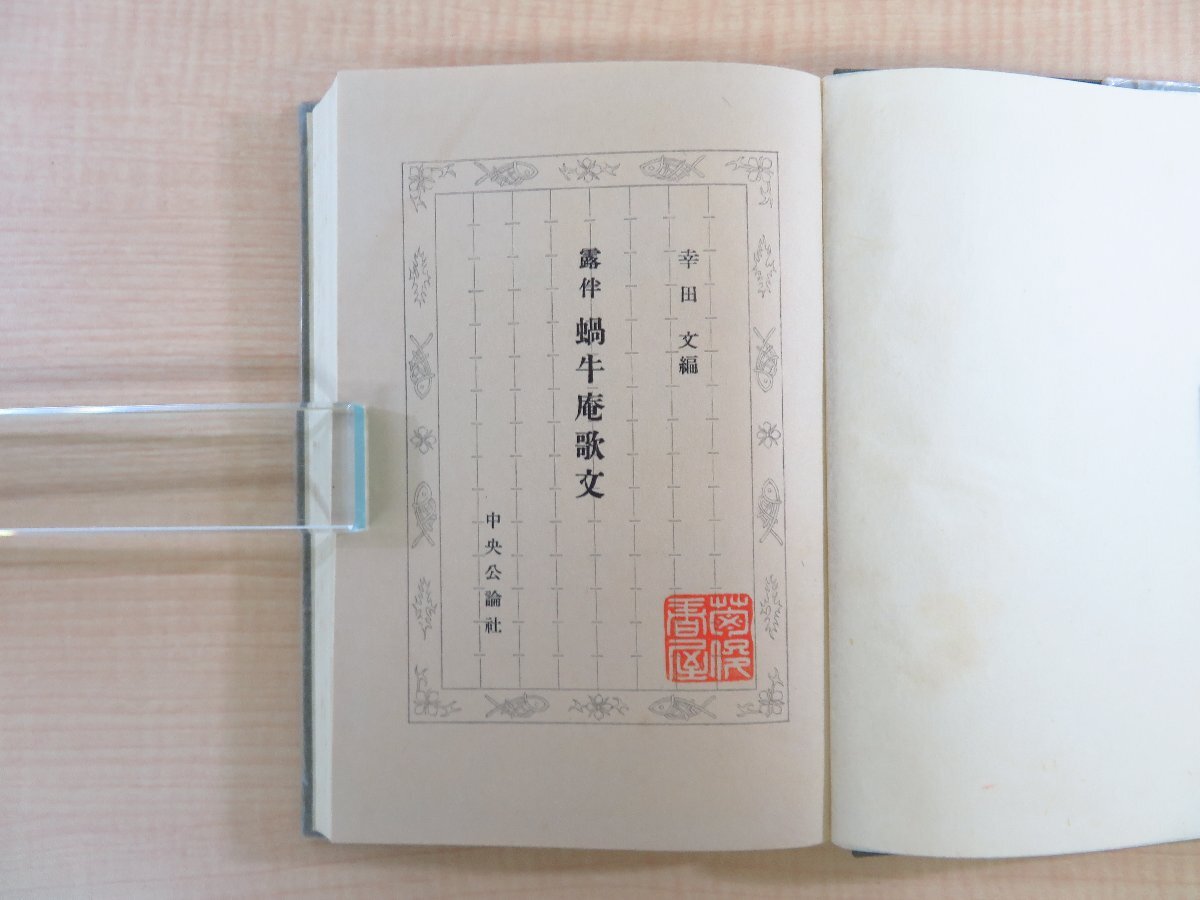 幸田文編
露伴 蝸牛庵歌文
中央公論社